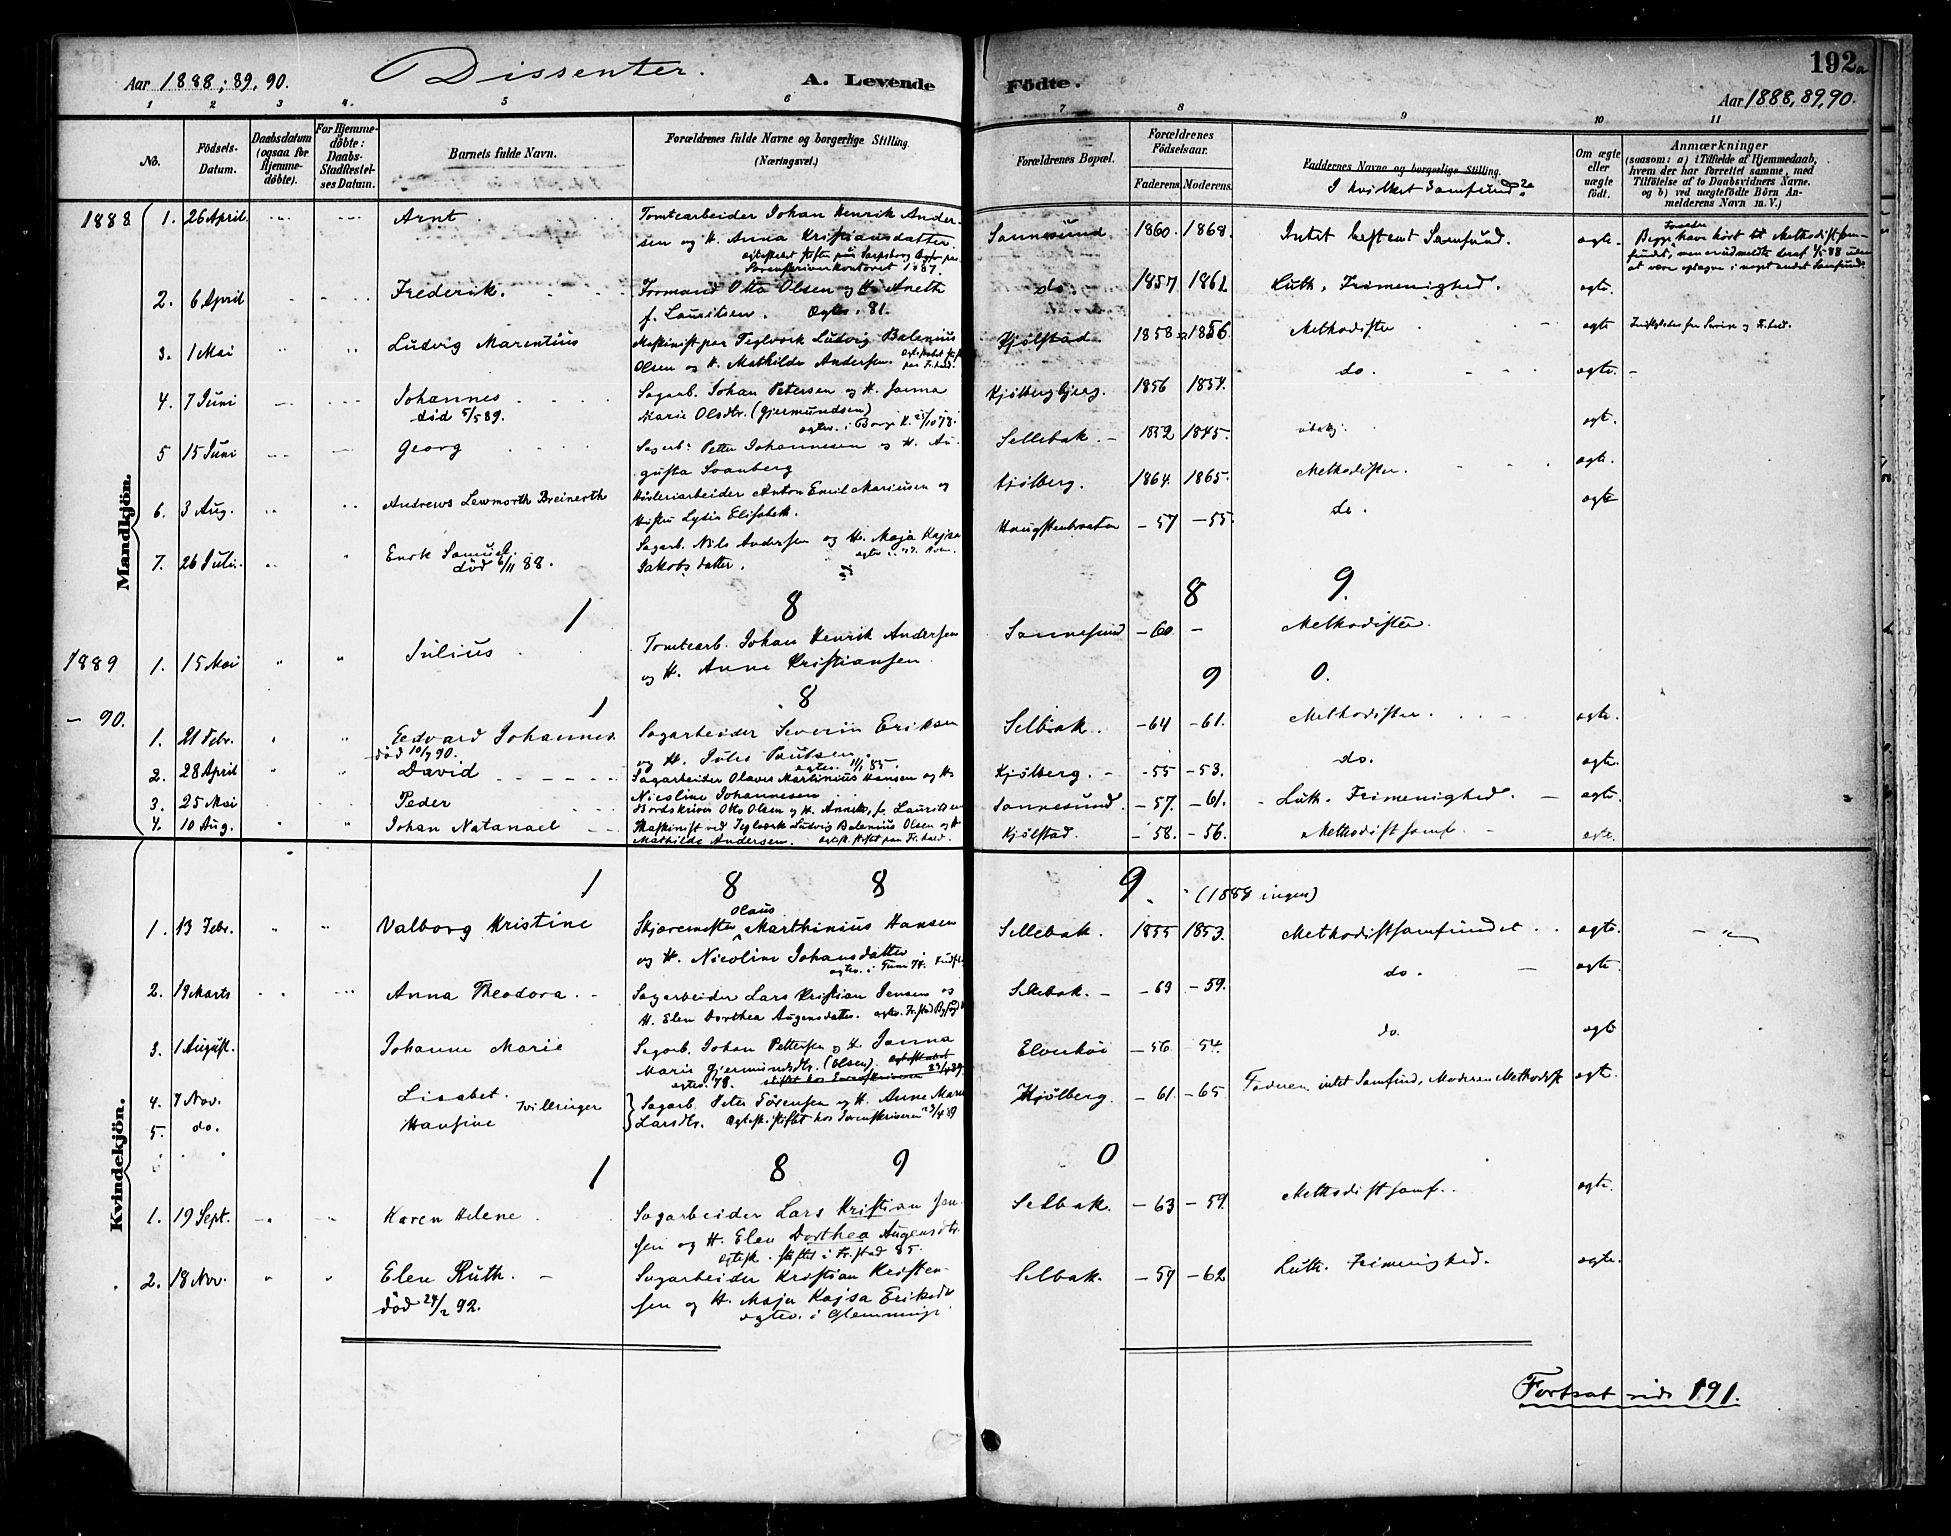 Aar 1888, 89, 90. Dissenter. A. Levende Födte. 192a
Aar 1888, 89, 90.
1 2 3 4. 5 6 7 8 9 10 11
No.
Födsels-Datum.
Daabsdatum (ogsaa for Hjemme-döbte).
For Hjemme-döbte: Daabs-Stadfæstel-ses Datum.
Barnets fulde Navn.
Forældrenes fulde Navne og borgerlige Stilling (Næringsvei.)
Forældrenes Bopæl.
Forældrenes Födselsaar.
Faderens. Moderens.
Faddernes Navne og borgerlige Stilling.
I hvilket Samfund?
Om ægte eller uægte födt.
Anmærkninger
(saasom: a) i Tilfælde af Hjemmedaab, hvem der har forrettet samme, med Tilföielse af to Daabsvidners Navne, og b) ved uægtefödte Börn An-melderens Navn m. V.)
Mandkjön.
1888 1. 26 April. Arnt Tomtearbeider Johan Henrik Ander-
sen og H. Anna Kristiansdatter.
Sannesund 1860. 1868. Intet bestemt Samfund. ægte.
2. 6 April Frederik. Formand Otto Olsen og H. Aneth
f. Lauritsen. Ægtev. 81.
do. 1857 1861 Luth. Frimenighed. ægte.
3. 1 Mai Ludvig Marentius Maskinist paa Teglverk Ludvig Balenius
Olsen og H. Mathilde Andersen.
Kjölstad. 1858 1856. Methodister ægte
4. 7 Juni Johannes Sagarb. Johan Petersen og H. Janna
död 5/5 89. Marie Olsdtr. (Gjermundsen)
Kjölbergbjerg. 1856 1854. do. ægte.
5 15 Juni Georg Sagarb. Petter Johannesen og H. Au-
gusta Svanberg
Sellebak. 1852 1845. ægt.
6. 3 Aug. Andrews Lewmorth Breinerth Anton Emil Mariusen og
Hustru Lydia Elisabeth.
Kjölberg. 1864. 1865. Methodister. ægte.
7. 26 Juli. Enok Samuel. Sagarb. Nils Andersen og H. Maja Kajsa
död 6/11 88. Jakobsdatter.
- 57 - 55. do. ægte
1 8 8 9.
1889 1. 15 Mai Julius Tomtearb. Johan Henrik Andersen
og H. Anne Kristiansen.
Sannesund - 60 - Methodister.
1 8 9 0.
- 90. 1. 21 Febr. Edvard Johannes. Sagarbeider Severin Eriksen
död 10/7 90. og H. Julie Paulsen.
ægtev. 11/1 85.
Selbak. - 64 - 61. Methodister. ægte.
2. 28 April David Sagarbeider Olaves Martinius Hansen og H.
Nicoline Johannesen
Kjölberg. - 55 - 53. do. ægte.
3. 25 Mai Peder Otto Olsen og H. Aneth, f. Lauritsen
Sannesund. - 57. - 61. Luth. Frimenighed. ægte.
4. 10 Aug. Johan Natanael Maskinist ved Teglverk Ludvig Balenius Olsen og H
Mathilde Andersen.
Kjölstad. - 58. - 56. Methodistsamf. ægte.
Kvindekjön.
1 8 8 9. (1888 ingen)
1. 13 Febr. Valborg Kristine Skjæremester Olaus Marthinius Hansen
og H. Nicoline Johansdatter
Sellebak. 1855 1853. Methodistsamfundet ægte.
2. 19 Marts Anna Theodora. Sagarbeider Lars Kristian Jensen og
H. Elen Dorthea Augensdatter.
Sellebak. - 63 - 59. do. ægte.
3. 1 August. Johanne Marie Sagarb. Johan Pettersen og H. Janna
Marie Gjermundsdtr. (Olsen)
ægtev. 78.
- 56 - 54. do. ægte
4. 7 Nov. Lisabet. Tvillinger Sagarb. Peter Sörensen og H. Anne Marie
5. do. Hansine Larsdtr.
Kjölberg. - 61 - 65 Faderen intet Samfund, Moderen Methodist ægte.
1 8 9 0
1. 19 Sept. Karen Helene Sagarbeider Lars Kristian Jen-
sen og H. Elen Dorthea Augensdtr.
ægtesk. stiftet i Fr.stad 85.
Selbak. - 63 - 59. Methodistsamf. ægte.
2. 18 Nov. Elen Ruth. Sagarbeider Kristian Kristen-
död 24/2 92. sen og H. Maja Kajsa Eriksdtr
ægtev. i Glemminge
Selbak. - 59 - 62 Luth. Frimenighed. ægte.
Fortsat side 191.